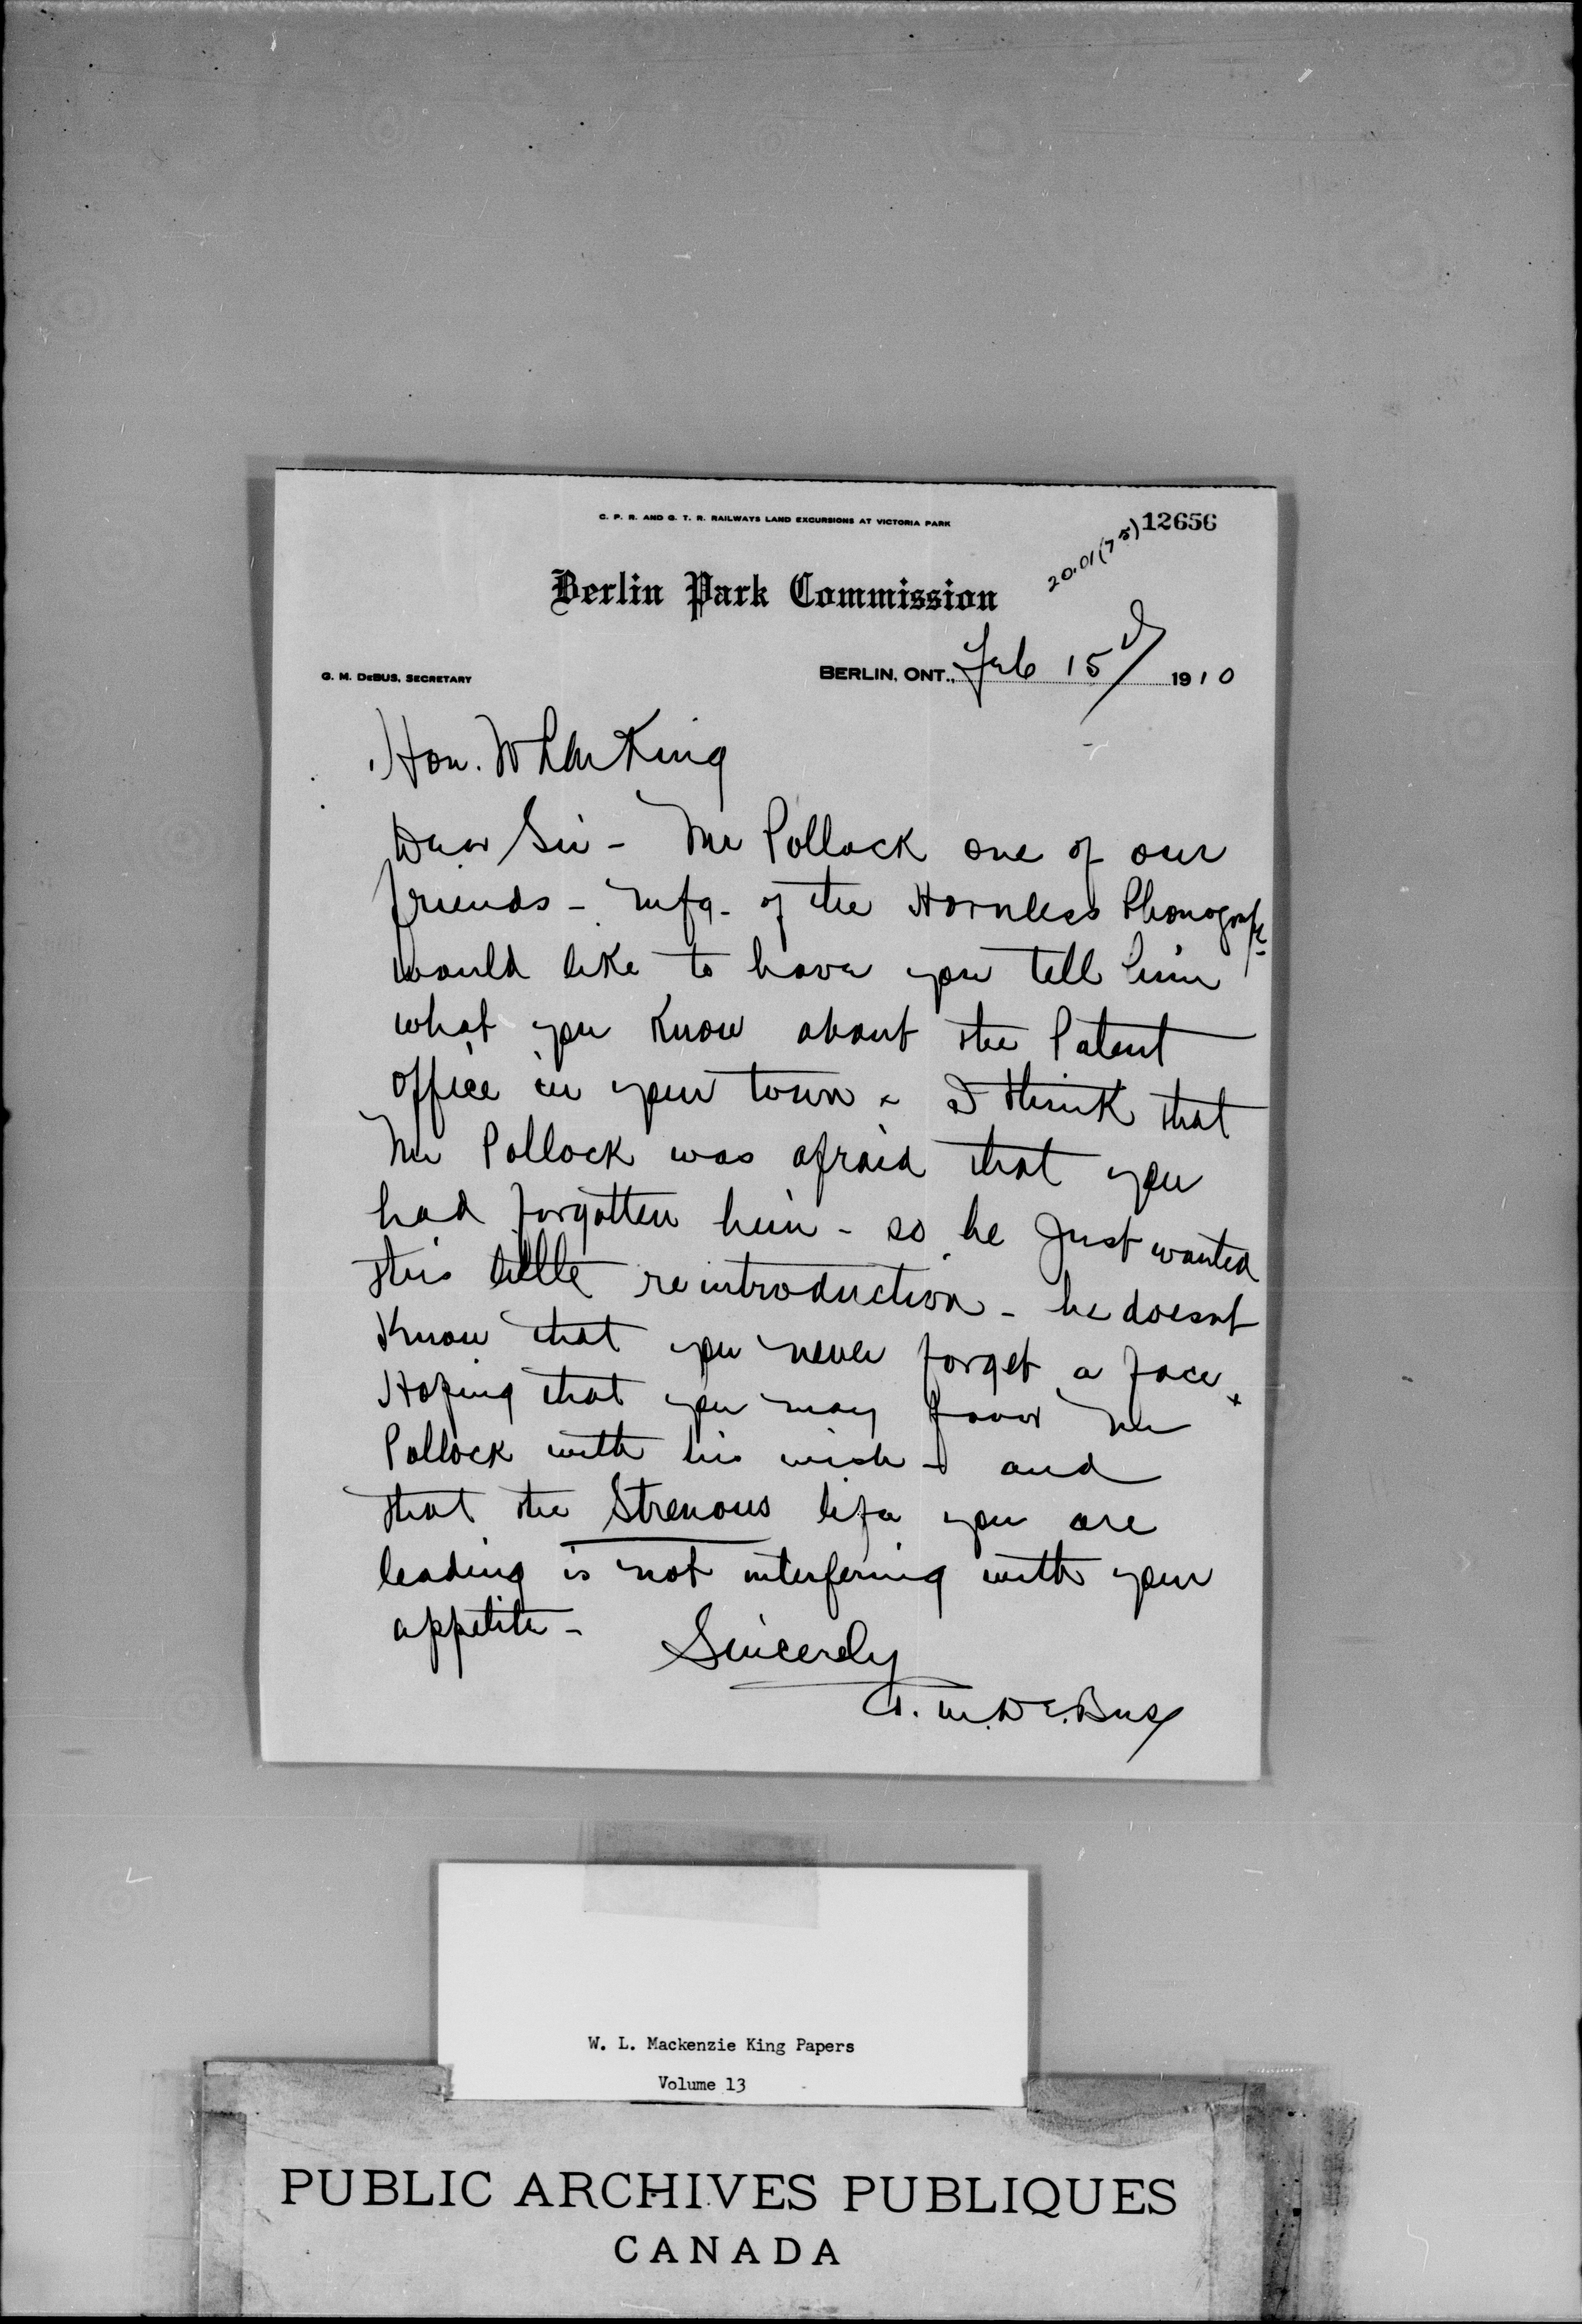 C. P. R. AND G. T. R. RAILWAYS LAND EXCURSIONS AT VICTORIA PARK
12656
20.01(75)
Berlin Park Commission
G. M. DeBUS, SECRETARY
BERLIN, ONT., Feb 15 1910
Hon. W L M King
Dear Sir - Mr Pollock one of our
friends - mfg. of the Hornless Phonograph
would like to have you tell him
what you know about the Patent
office in your town - I think that
Mr Pollock was afraid that you
had forgotten him - so he just wanted
this little reintroduction - he doesnt
know that you never forget a face.
Hoping that you may favor Mr
Pollock with his wish - and
that the Strenous life you are
leading is not interfering with your
appetite -
Sincerely
G. M. DeBus
W. L. Mackenzie King Papers
Volume 13
PUBLIC ARCHIVES PUBLIQUES
CANADA